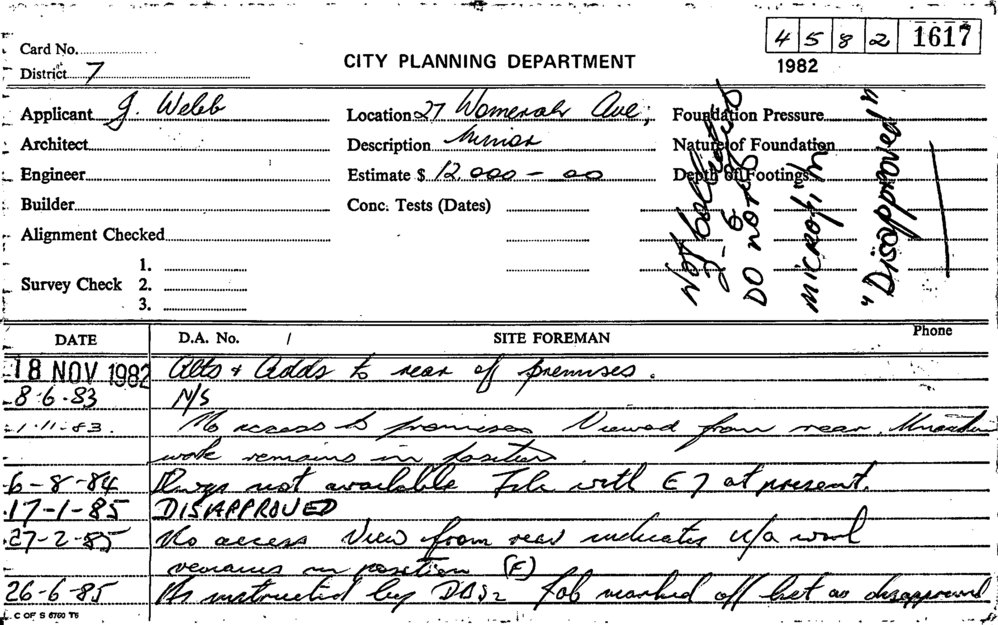 4 5 8 2 1617
Card No.
1982
District 7
CITY PLANNING DEPARTMENT
Applicant J. Webb
Location 27 Womerah Ave,
Foundation Pressure
Architect
Description Minor
Nature of Foundation
Engineer
Estimate $ 12.000 - 00
Depth of Footings
Builder
Conc. Tests (Dates)
Alignment Checked
Survey Check
1.
2.
3.
Not Collected
DO NOT
MICROFILM
"Disapproved"
DATE D.A. No. / SITE FOREMAN Phone
18 NOV 1982 Alts & Adds to rear of premises.
8-6-83 N/S
1-11-83. No access to premises Viewed from rear.
work remains in position.
6-8-84 Dwgs not available File with E7 at present.
17-1-85 DISAPPROVED
27-2-85 No access View from rear indicates u/a work
remains in position (E)
26-6-85 As instructed by Job marked off list as disapproved
C OF S 6760 T6